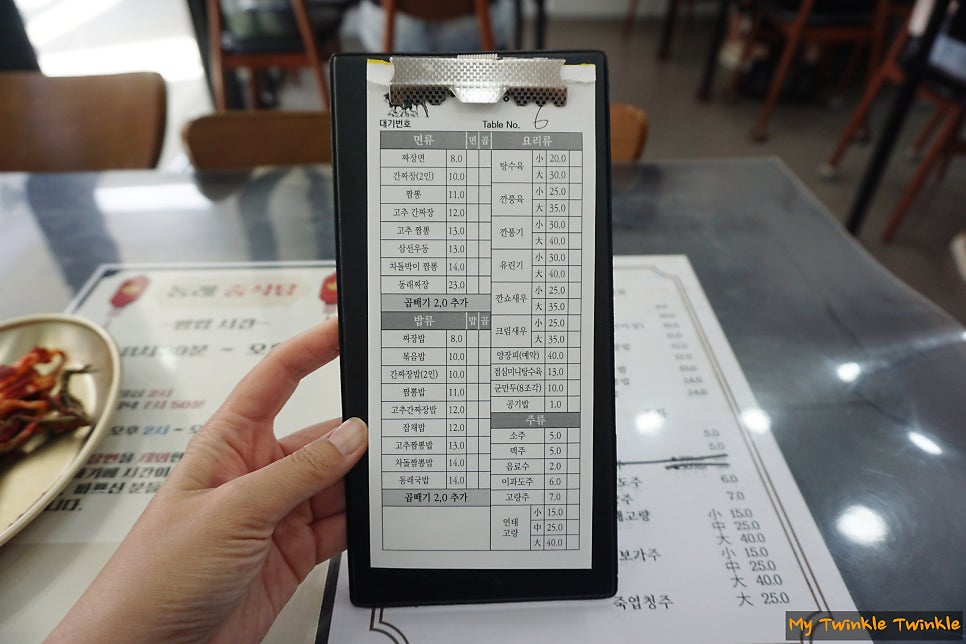 대기번호 Table No. 6
면류 면 곱
짜장면 8.0
간짜장(2인) 10.0
짬뽕 11.0
고추 간짜장 12.0
고추 짬뽕 13.0
삼선우동 13.0
차돌박이 짬뽕 14.0
동래짜장 23.0
곱빼기 2,0 추가
밥류 밥 곱
짜장밥 8.0
볶음밥 10.0
간짜장밥(2인) 10.0
짬뽕밥 11.0
고추간짜장밥 12.0
잡채밥 12.0
고추짬뽕밥 13.0
차돌짬뽕밥 14.0
동래국밥 14.0
곱빼기 2,0 추가
요리류
탕수육 小 20.0
大 30.0
깐풍육 小 25.0
大 35.0
깐풍기 小 30.0
大 40.0
유린기 小 30.0
大 40.0
깐쇼새우 小 25.0
大 35.0
크림새우 小 25.0
大 35.0
양장피(예약) 40.0
점심미니탕수육 13.0
군만두(8조각) 10.0
공기밥 1.0
주류
소주 5.0
맥주 5.0
음료수 2.0
이과도주 6.0
고량주 7.0
연태고량 小 15.0
中 25.0
大 40.0
동래 중식당
영업 시간
7시 50분
오후 2시 ~
14.0
5.0
5.0
도주 6.0
량주 7.0
고량 小 15.0
中 25.0
大 40.0
보가주 小 15.0
中 25.0
大 40.0
죽엽청주 大 25.0
My Twinkle Twinkle